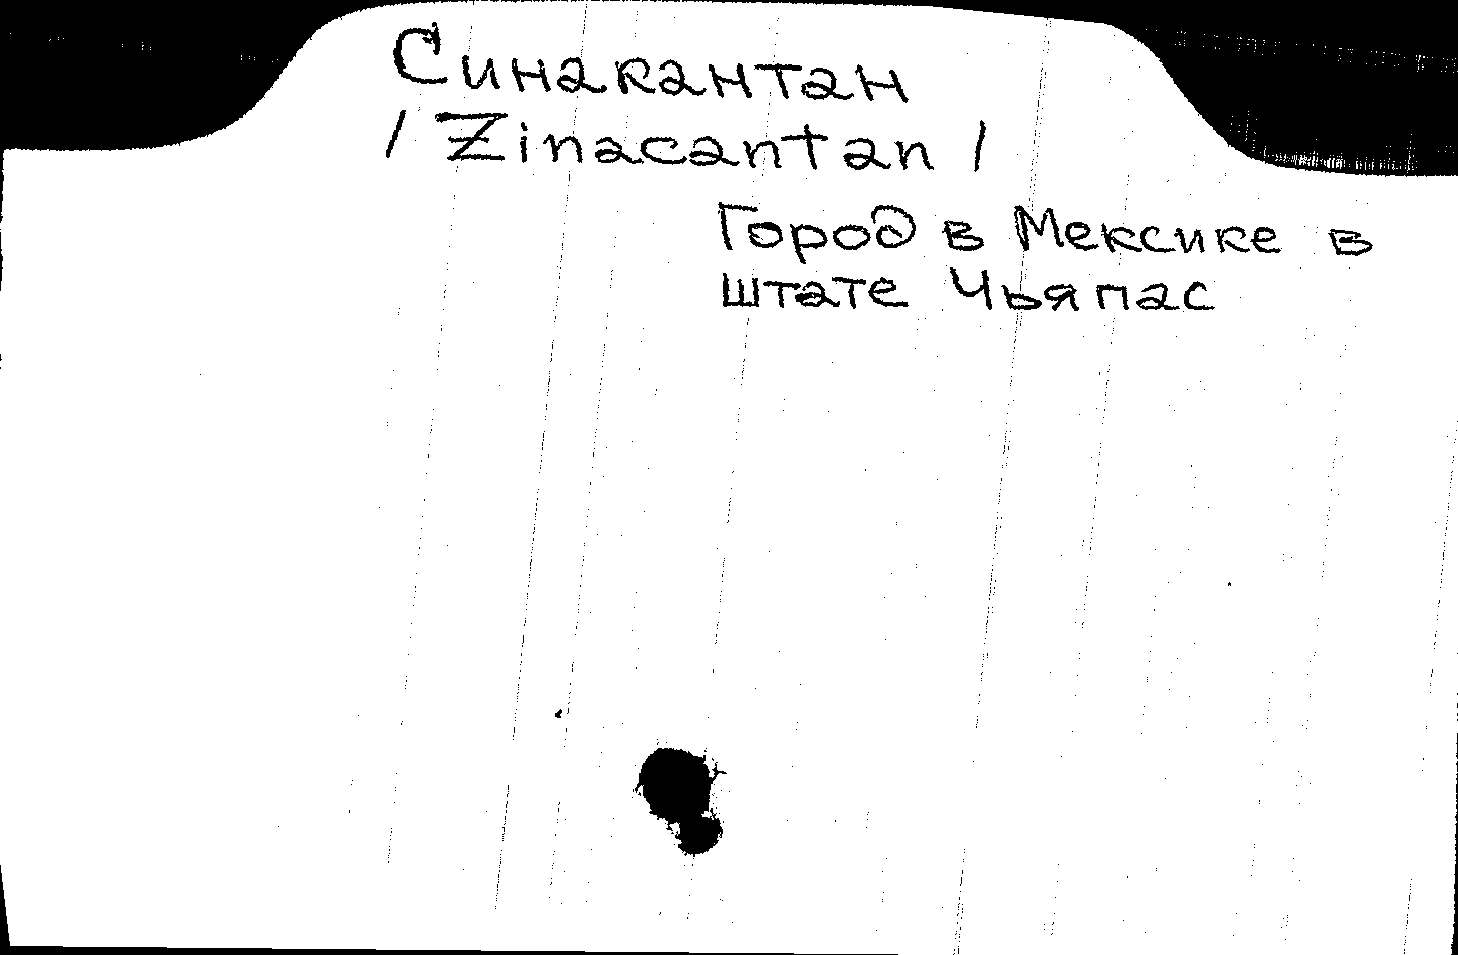 Синакантан
/ Zinacantan /
Город в Мексике в
штате Чьяпас